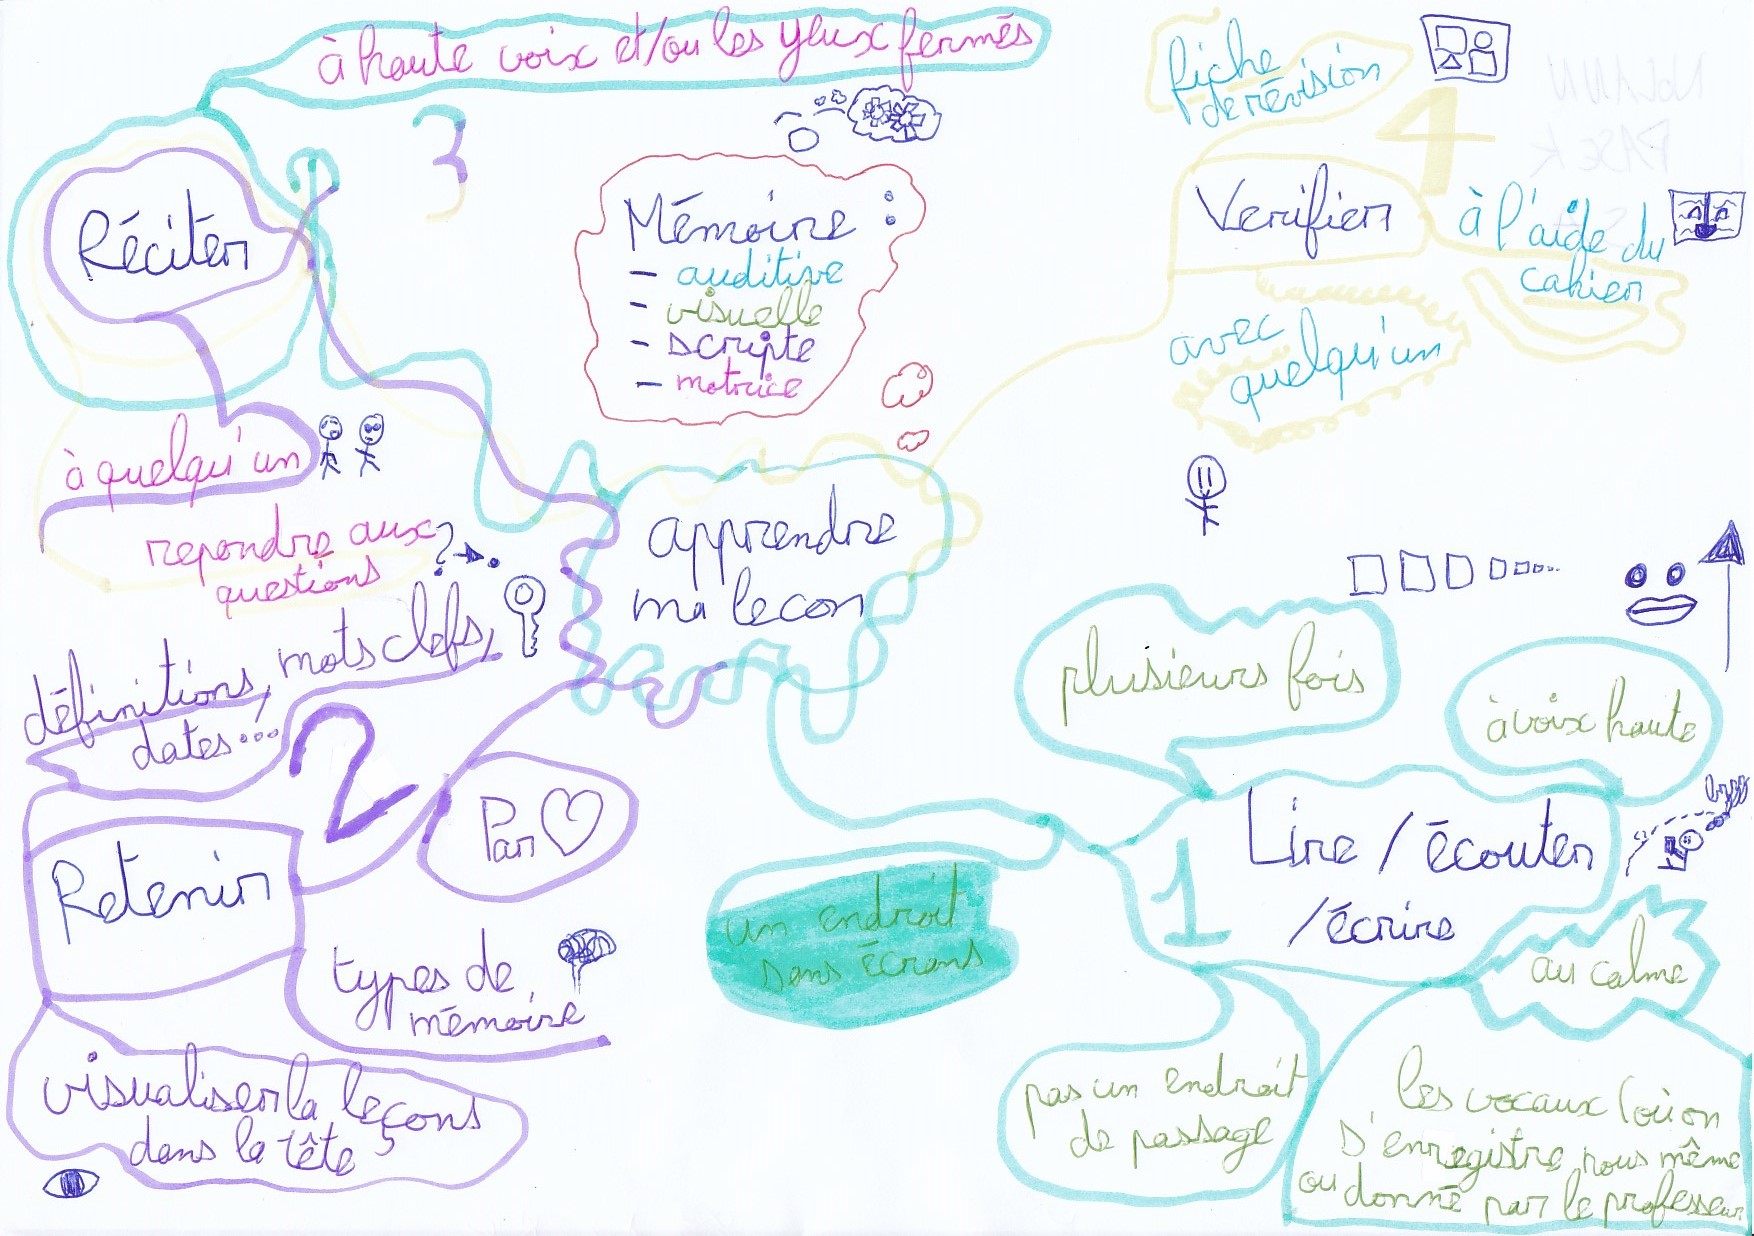 à haute voix et/ou les yeux fermés
3
Réciter
à quelqu'un
repondre aux
questions
?
Mémoire :
- auditive
- visuelle
- scripte
- motrice
fiche
de révision
4
Verifier
à l'aide du
cahier
avec
quelqu'un
apprendre
ma lecon
définitions, mots clefs,
dates...
2
Retenir
Par
types de
mémoire
visualiser la leçons
dans la tête
plusieurs fois
à voix haute
1
Lire / écouter
/écrire
au calme
un endroit
sans écrans
pas un endroit
de passage
les vocaux (où on
s'enregistre nous même
ou donné par le professeur